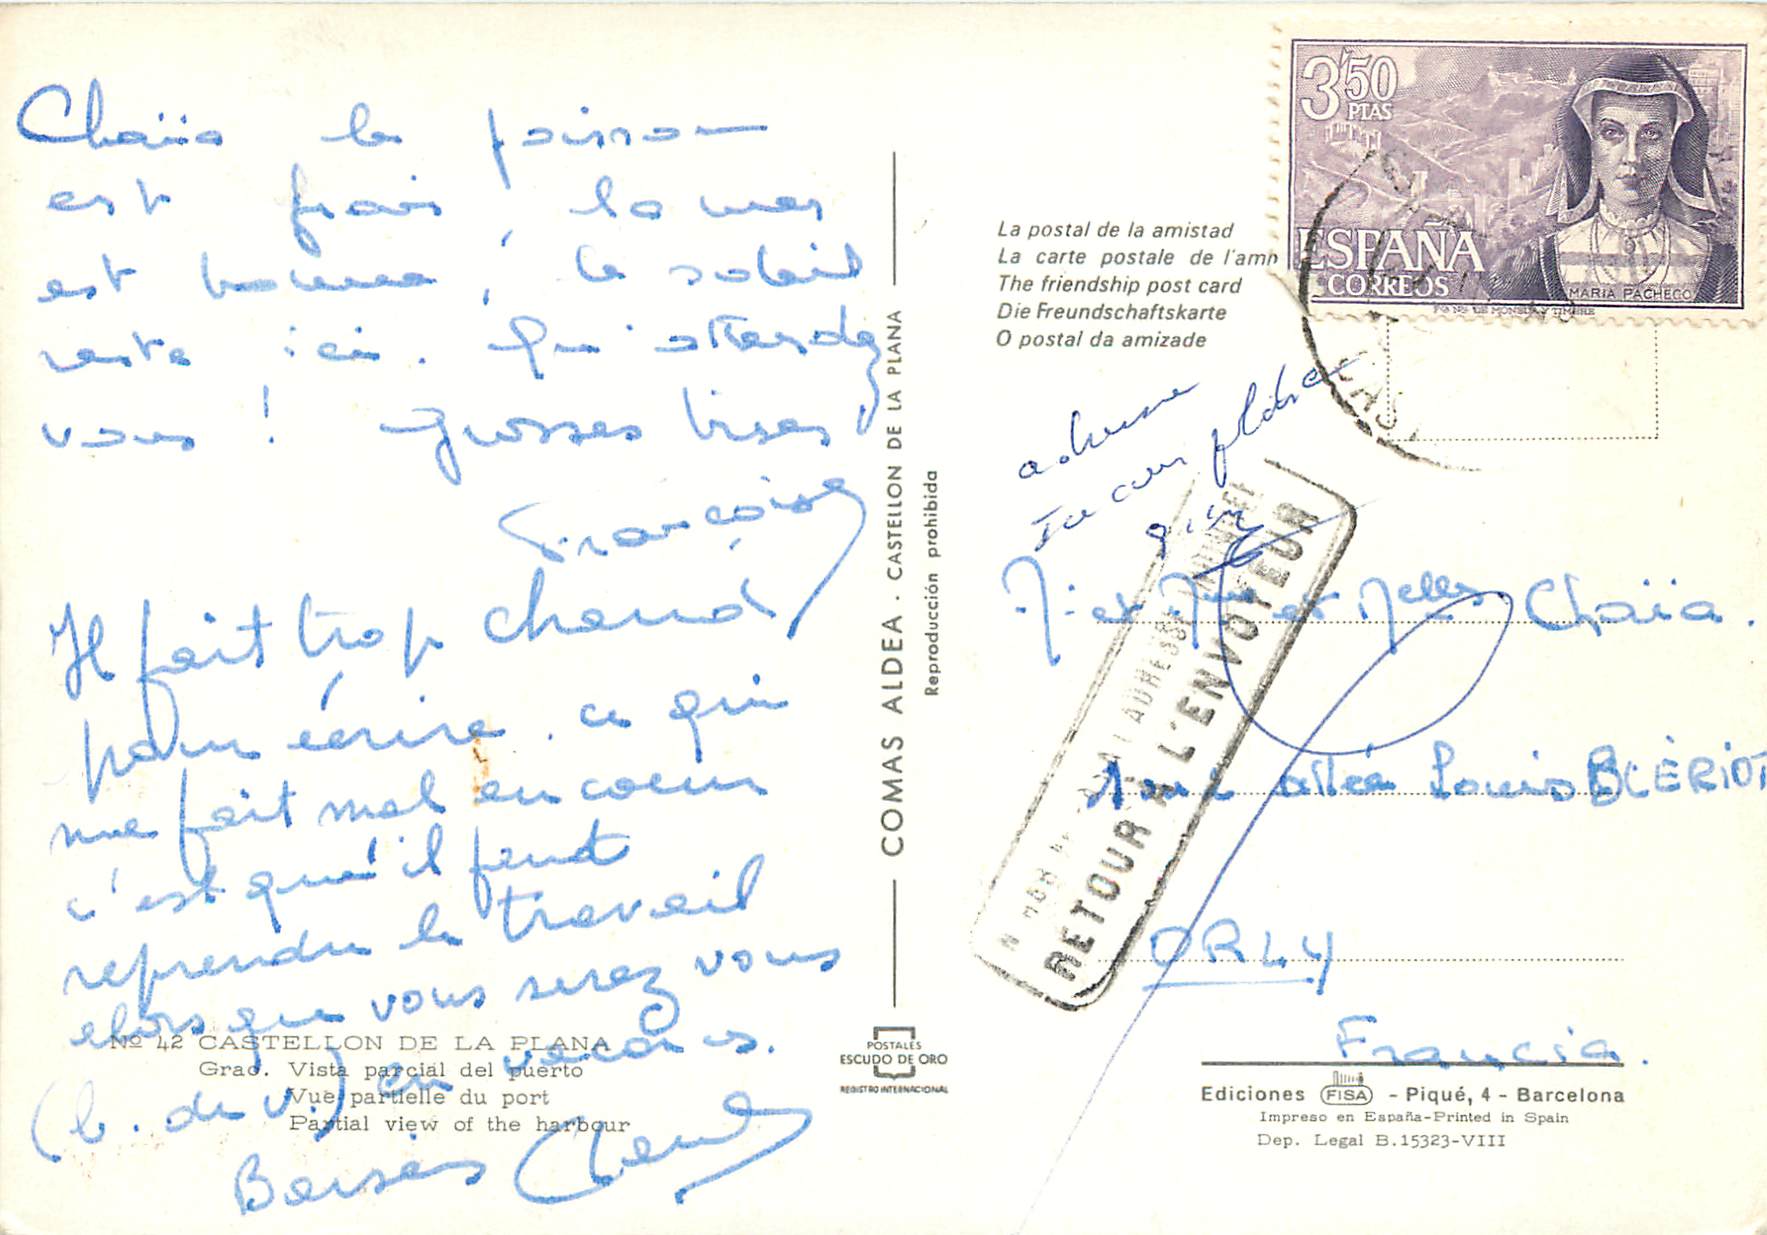 Chaiia le poisson
est frais, la mer
est bonne, le soleil
reste ici. Qu'attendez
vous ! Grosses bises
Françoise
Il fait trop chaud
pour écrire. ce qui
me fait mal au coeur
c'est qu'il faut
reprendre le travail
alors que vous serez vous
(b. de v.) en vacances.
Baisers Claude
Nº 42 CASTELLON DE LA PLANA
Grao. Vista parcial del puerto
Vue partielle du port
Partial view of the harbour
COMAS ALDEA · CASTELLON DE LA PLANA
Reproducción prohibida
POSTALES
ESCUDO DE ORO
REGISTRO INTERNACIONAL
La postal de la amistad
La carte postale de l'am
The friendship post card
Die Freundschaftskarte
O postal da amizade
3'50
PTAS
ESPAÑA
CORREOS
MARIA PACHECO
CAS
adresse
incomplète
A L'ADRESSE INDIQUÉE
RETOUR A L'ENVOYEUR
M. et Mme et Melles Chaiia.
allée Louis BLÉRIOT
ORLY
Francia.
Ediciones FISA - Piqué, 4 - Barcelona
Impreso en España-Printed in Spain
Dep. Legal B.15323-VIII